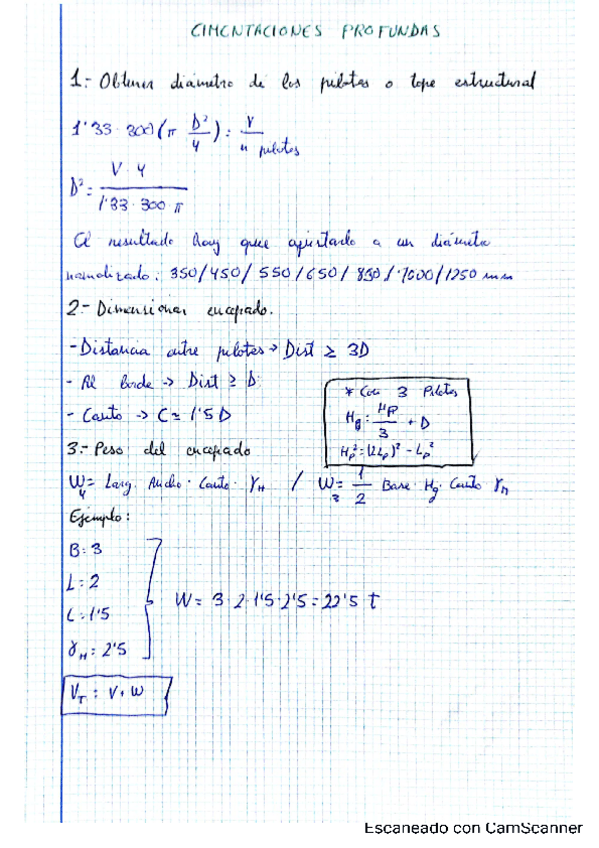 CIMENTACIONES PROFUNDAS
1.- Obtener diámetro de los pilotes o tope estructural
1'33 · 300 (π D²/4) = V / n pilotes
D² = V · 4 / 1'33 · 300 π
El resultado hay que ajustarlo a un diámetro
normalizado: 350/450/550/650/850/1000/1250 mm
2.- Dimensionar encepado.
- Distancia entre pilotes → Dist ≥ 3D
- Al borde → Dist ≥ D
- Canto → C = 1'5 D
* Con 3 Pilotes
Hg = Hp/3 + D
Hp² = (2Lp)² - Lp²
3.- Peso del encepado
W4 = Larg. Ancho · Canto · γH / W3 = 1/2 Base · Hg · Canto γH
Ejemplo:
B = 3
L = 2
C = 1'5
γH = 2'5
W = 3 · 2 · 1'5 · 2'5 = 22'5 t
VT = V + W
Escaneado con CamScanner